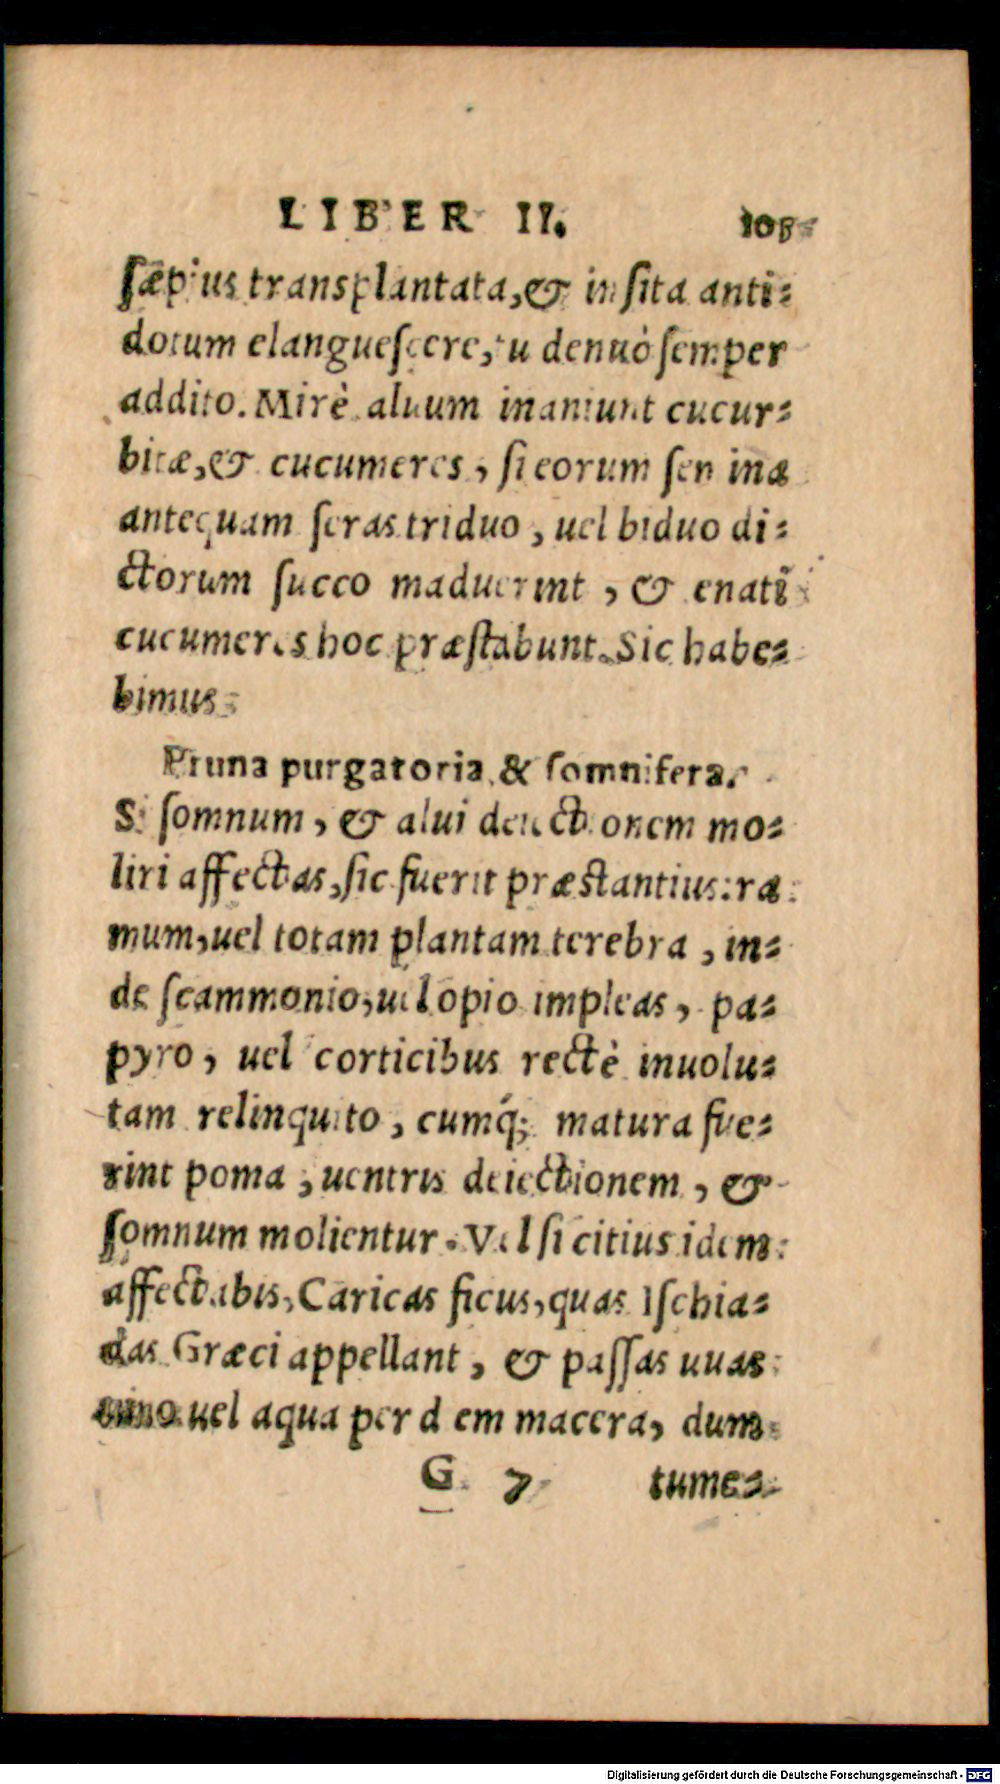 LIBER II. 105
sæpius transplantata, & insita anti-
dotum elanguescere, tu denuò semper
addito. Mirè aluum inaniunt cucur-
bitæ, & cucumeres, si eorum semina
antequam seras triduo, uel biduo di-
ctorum succo maduerint, & enati
cucumeres hoc præstabunt. Sic habe-
bimus
Pruna purgatoria & somnifera.
Si somnum, & alui deiectionem mo-
liri affectas, sic fuerit præstantius: ra
mum, uel totam plantam terebra, in-
de scammonio, uel opio impleas, pa-
pyro, uel corticibus rectè inuolu-
tam relinquito, cumq́; matura fue-
rint poma, uentris deiectionem, &
somnum molientur. Vel si citius idem
affectabis, Caricas ficus, quas Ischia-
das Græci appellant, & passas uuas
uino uel aqua per d em macera, dum
G 7 tumes-
Digitalisierung gefördert durch die Deutsche Forschungsgemeinschaft - DFG